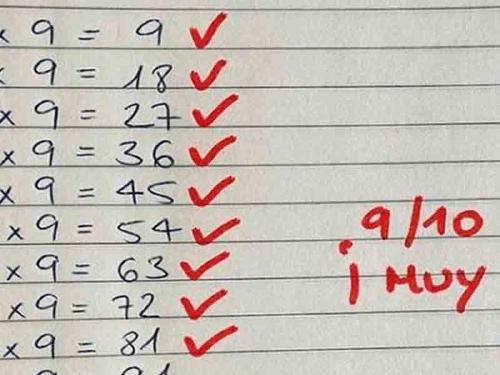 x 9 = 9 ✓
x 9 = 18 ✓
x 9 = 27 ✓
x 9 = 36 ✓
x 9 = 45 ✓
x 9 = 54 ✓
x 9 = 63 ✓
x 9 = 72 ✓
x 9 = 81 ✓
9/10
¡MUY